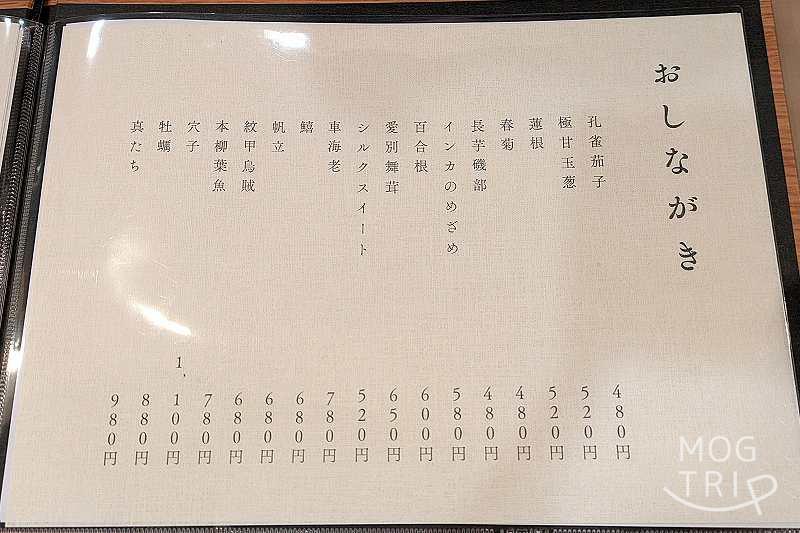 おしながき
孔雀茄子 480円
極甘玉葱 520円
蓮根 520円
春菊 480円
長芋磯部 480円
インカのめざめ 580円
百合根 600円
愛別舞茸 650円
シルクスイート 520円
車海老 780円
鱚 680円
帆立 680円
紋甲烏賊 680円
本柳葉魚 780円
穴子 1,100円
牡蠣 880円
真たち 980円
MOG
TRIP